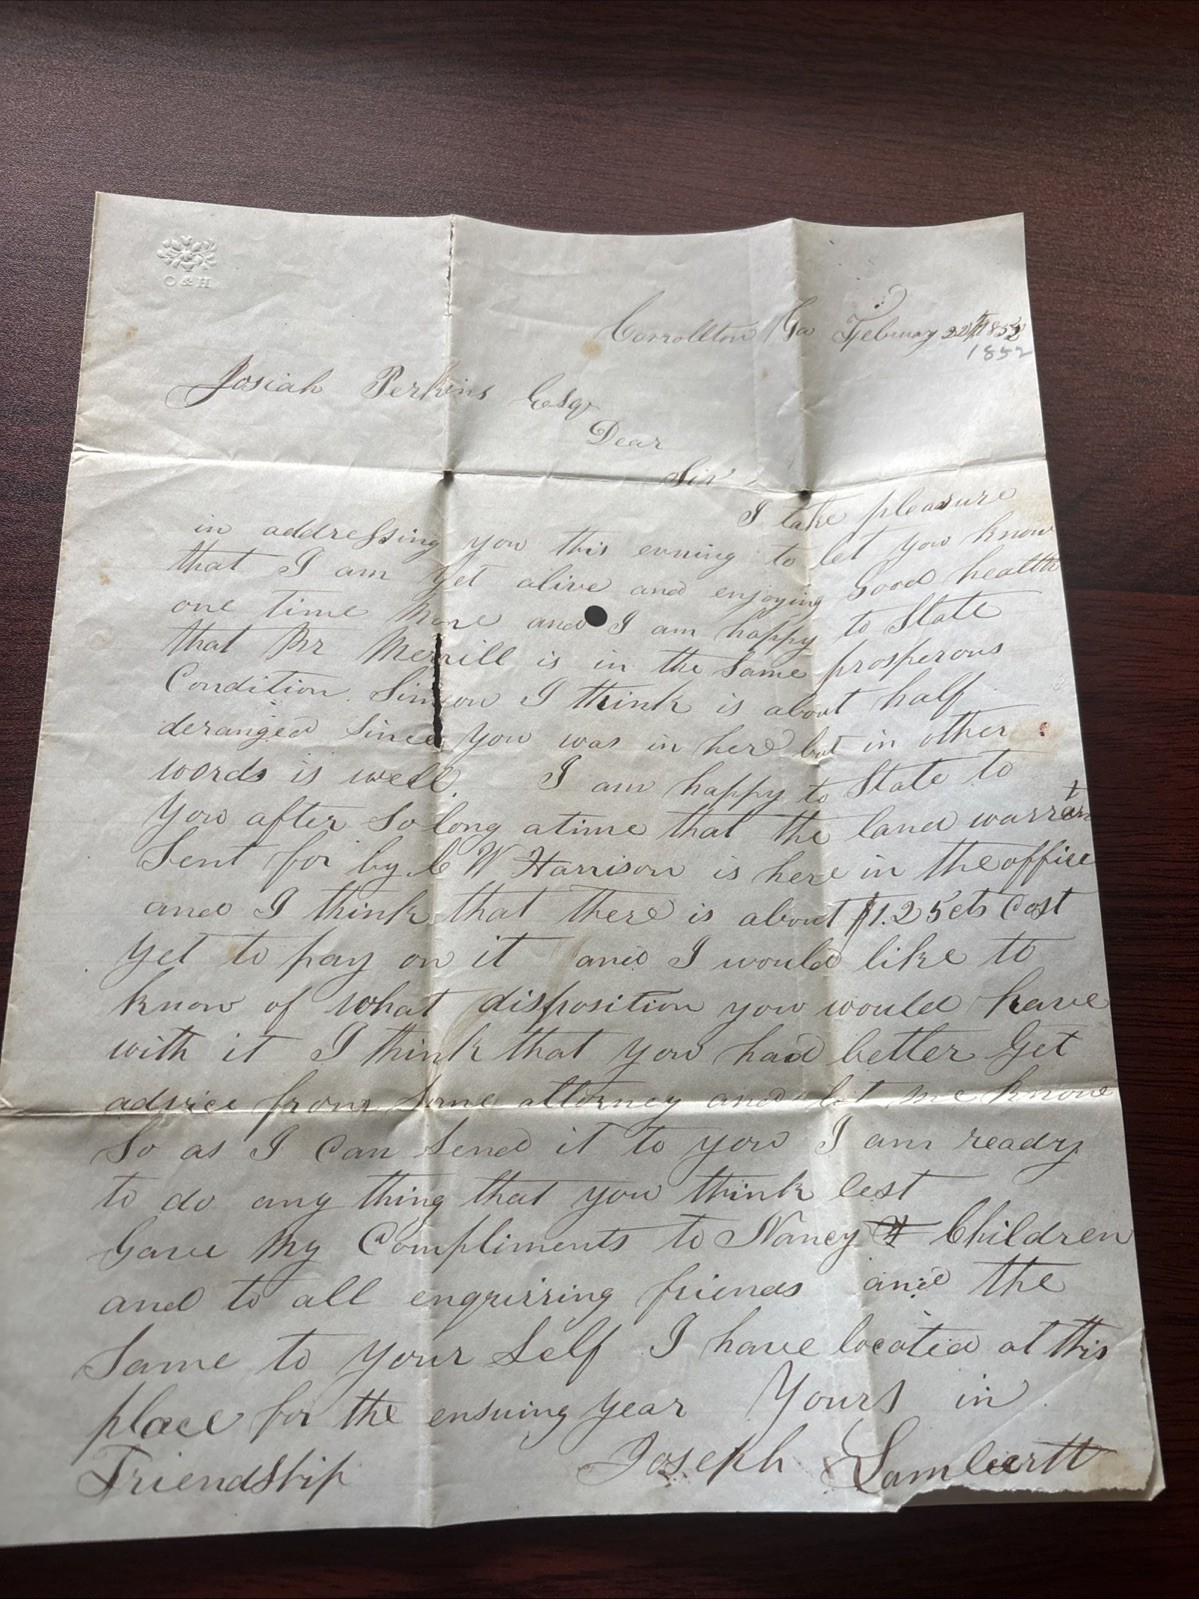 O & H
Carrollton Ga February 22th 1852
1852
Josiah Perkins Esqr
Dear
Sir
I take pleasure
in addressing you this evning to let you know
that I am yet alive and enjoying Good health
one time more and I am happy to State
that Mr Merrill is in the Same prosperous
Condition. Simeon I think is about half
deranged Since you was in here but in other
words is well. I am happy to State to
you after So long atime that the land warrant
Sent for by C W Harrison is here in the office
and I think that there is about $1.25cts Cost
yet to pay on it and I would like to
know of what disposition you would have
with it I think that you had better Get
advice from Some attorney and let me know
So as I can Send it to you I am ready
to do any thing that you think best
Gave My Compliments to Nancy & Children
and to all enquirring friends and the
Same to your Self I have located at this
place for the ensuing year Yours in
Friendship Joseph Lambertt